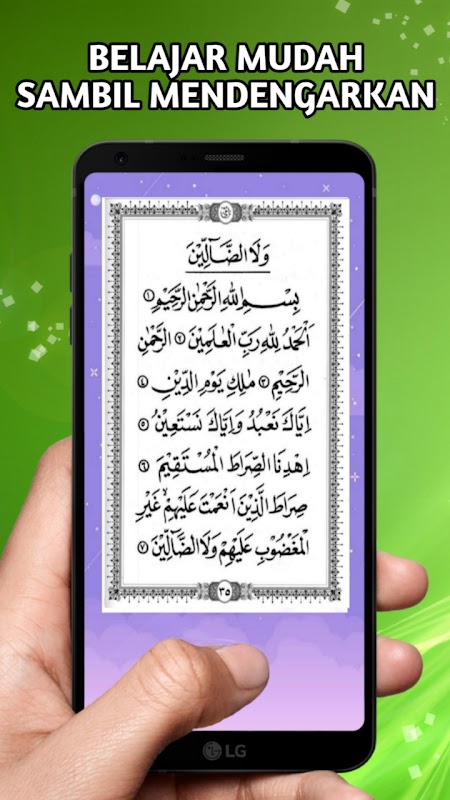 BELAJAR MUDAH
SAMBIL MENDENGARKAN
وَلَا الضَّآلِّيْنَ
بِسْمِ اللّٰهِ الرَّحْمٰنِ الرَّحِيْمِ ١
اَلْحَمْدُ لِلّٰهِ رَبِّ الْعٰلَمِيْنَ ٢ الرَّحْمٰنِ
الرَّحِيْمِ ٣ مٰلِكِ يَوْمِ الدِّيْنِ ٤
اِيَّاكَ نَعْبُدُ وَاِيَّاكَ نَسْتَعِيْنُ ٥
اِهْدِنَا الصِّرَاطَ الْمُسْتَقِيْمَ ٦
صِرَاطَ الَّذِيْنَ اَنْعَمْتَ عَلَيْهِمْ غَيْرِ
الْمَغْضُوْبِ عَلَيْهِمْ وَلَا الضَّآلِّيْنَ ٧
٣٥
LG